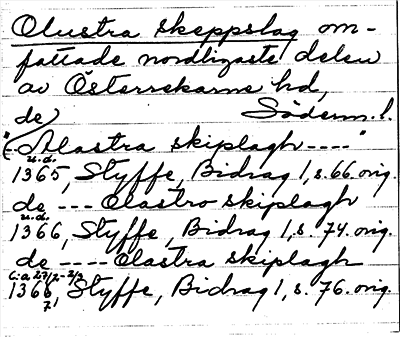 Olustra skeppslag om-
fattade nordligaste delen
av Österrekarne hd,
de Söderm.l.
"(- Alastra skiplagh ----"
u.d.
1365, Styffe, Bidrag 1, s. 66. orig.
de --- Olastro skiplagh
u.d.
1366, Styffe, Bidrag 1, s. 74. orig.
de ---- Olastra skiplagh
c:a 27/2-2/3
1366, Styffe, Bidrag 1, s. 76. orig.